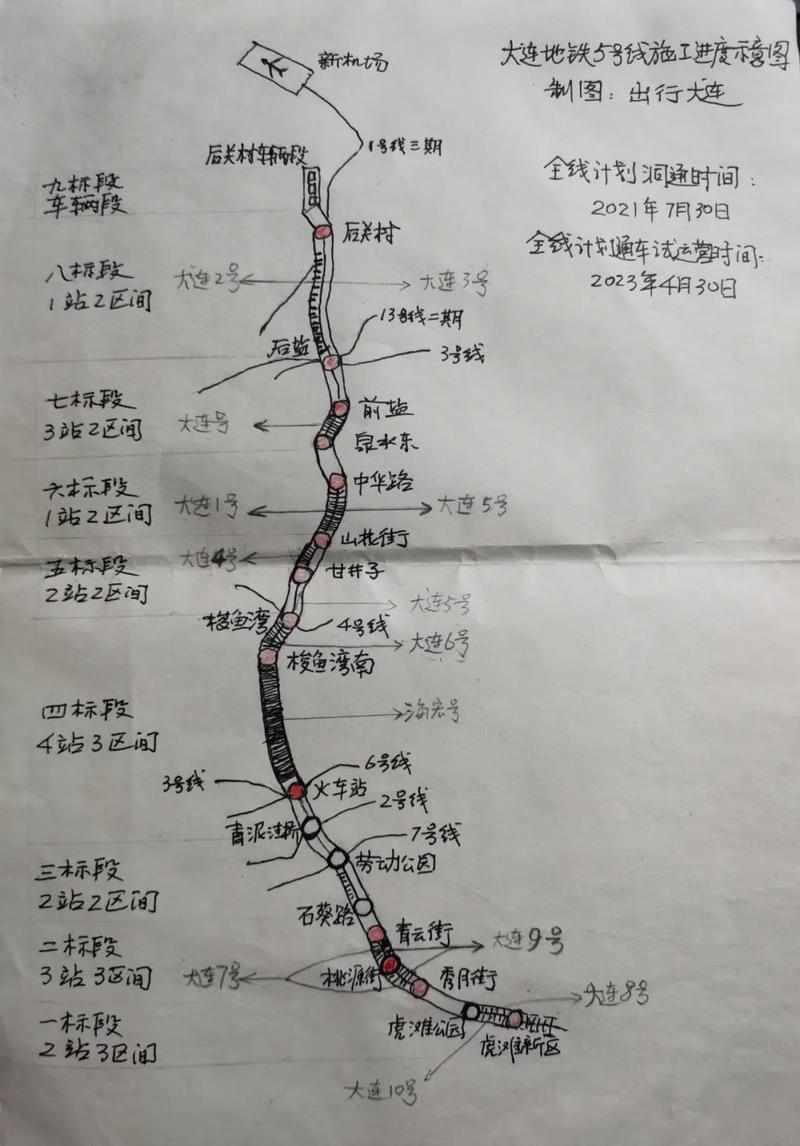 大连地铁5号线施工进度示意图
制图：出行大连
全线计划洞通时间：
2021年7月30日
全线计划通车试运营时间：
2023年4月30日
新机场
1号线三期
后关村车辆段
九标段
车辆段
后关村
八标段
1站2区间
大连2号
大连3号
13号线二期
后盐
3号线
七标段
3站2区间
大连号
前盐
泉水东
六标段
1站2区间
中华路
大连1号
大连5号
山花街
大连4号
五标段
2站2区间
甘井子
大连5号
梭鱼湾
4号线
大连6号
梭鱼湾南
四标段
4站3区间
海宏号
6号线
3号线
火车站
2号线
青泥洼桥
7号线
劳动公园
三标段
2站2区间
石葵路
青云街
二标段
3站3区间
大连9号
大连7号
桃源街
秀月街
大连8号
一标段
2站3区间
虎滩公园
虎滩新区
大连10号